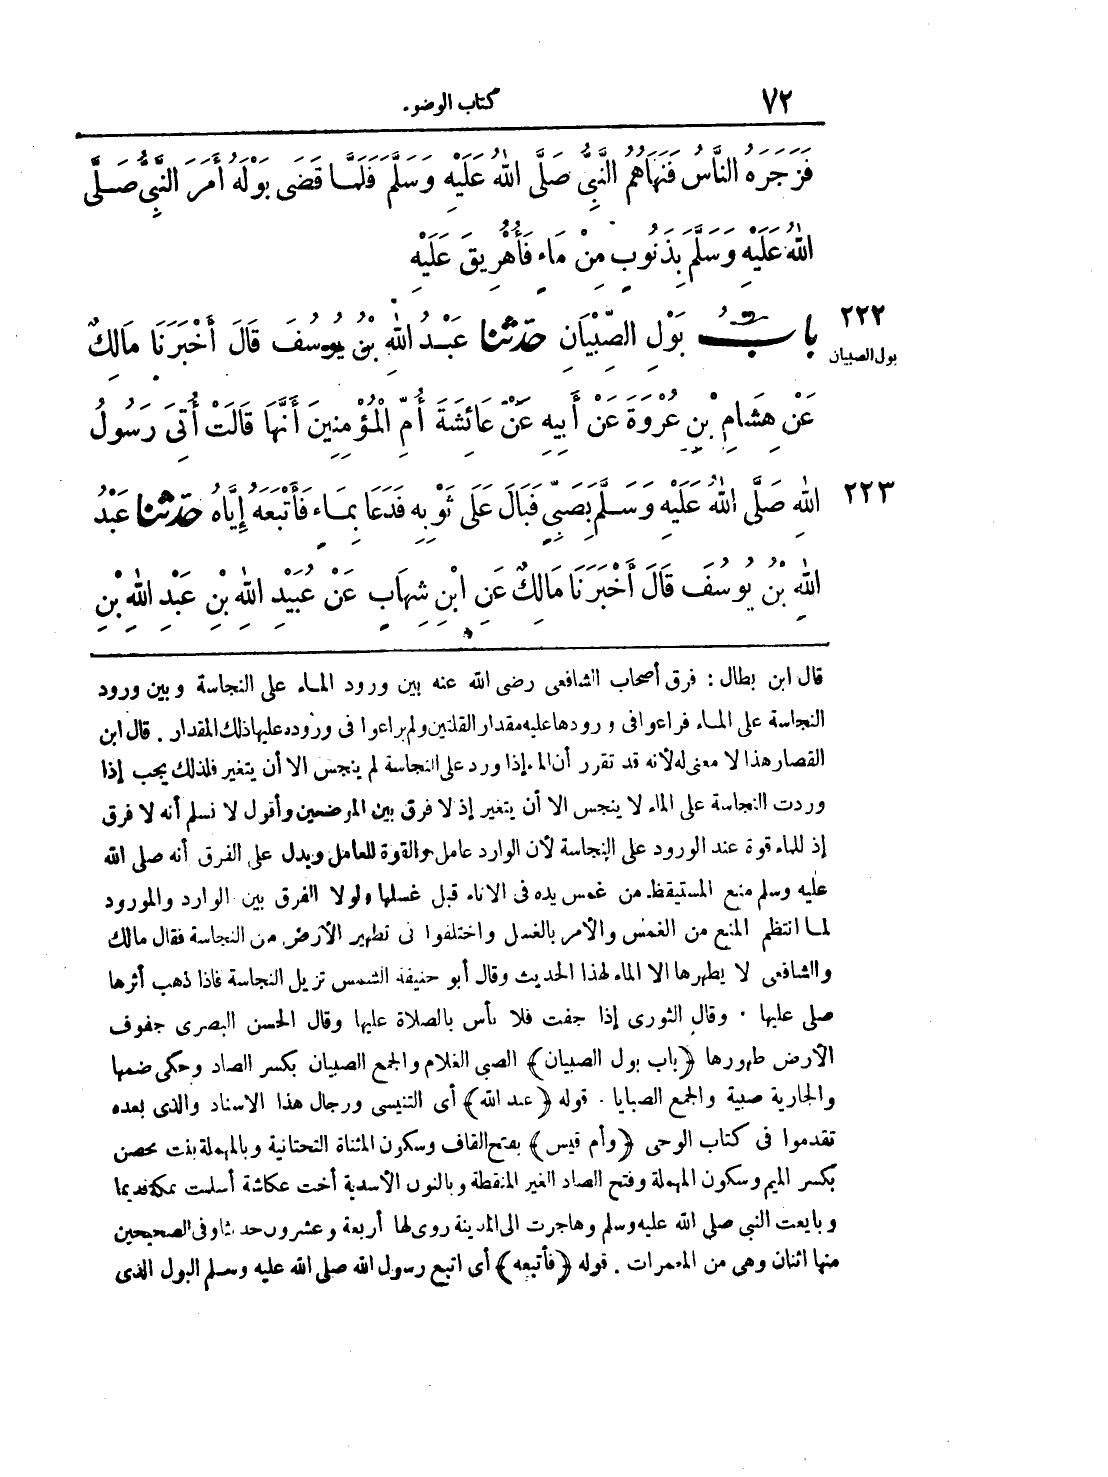 ٧٢
كتاب الوضوء
فَزَجَرَهُ النَّاسُ فَنَهَاهُمُ النَّبِيُّ صَلَّى اللهُ عَلَيْهِ وَسَلَّمَ فَلَمَّا قَضَى بَوْلَهُ أَمَرَ النَّبِيُّ صَلَّى
اللهُ عَلَيْهِ وَسَلَّمَ بِذَنُوبٍ مِنْ مَاءٍ فَأُهْرِيقَ عَلَيْهِ
٢٢٢
بول الصبيان
بابُ بَوْلِ الصِّبْيَانِ حدثنا عَبْدُ اللهِ بْنُ يُوسُفَ قَالَ أَخْبَرَنَا مَالِكٌ
عَنْ هِشَامِ بْنِ عُرْوَةَ عَنْ أَبِيهِ عَنْ عَائِشَةَ أُمِّ الْمُؤْمِنِينَ أَنَّهَا قَالَتْ أُتِىَ رَسُولُ
٢٢٣
اللهِ صَلَّى اللهُ عَلَيْهِ وَسَلَّمَ بِصَبِيٍّ فَبَالَ عَلَى ثَوْبِهِ فَدَعَا بِمَاءٍ فَأَتْبَعَهُ إِيَّاهُ حدثنا عَبْدُ
اللهِ بْنُ يُوسُفَ قَالَ أَخْبَرَنَا مَالِكٌ عَنِ ابْنِ شِهَابٍ عَنْ عُبَيْدِ اللهِ بْنِ عَبْدِ اللهِ بْنِ
قال ابن بطال : فرق أصحاب الشافعى رضى الله عنه بين ورود الماء على النجاسة وبين ورود
النجاسة على الماء فراعوا فى ورودها عليه مقدار القلتين ولم يراعوا فى وروده عليها ذلك المقدار . قال ابن
القصار هذا لا معنى له لأنه قد تقرر أن الماء إذا ورد على النجاسة لم ينجس الا أن يتغير فلذلك يجب إذا
وردت النجاسة على الماء لا ينجس الا أن يتغير إذ لا فرق بين الموضعين وأقول لا نسلم أنه لا فرق
إذ للماء قوة عند الورود على النجاسة لأن الوارد عامل والقوة للعامل ويدل على الفرق أنه صلى الله
عليه وسلم منع المستيقظ من غمس يده فى الاناء قبل غسلها ولولا الفرق بين الوارد والمورود
لما انتظم المنع من الغمس والأمر بالغسل واختلفوا فى تطهير الأرض من النجاسة فقال مالك
والشافعى لا يطهرها الا الماء لهذا الحديث وقال أبو حنيفة الشمس تزيل النجاسة فاذا ذهب أثرها
صلى عليها . وقال الثورى إذا جفت فلا بأس بالصلاة عليها وقال الحسن البصرى جفوف
الأرض طهورها ﴿باب بول الصبيان﴾ الصبى الغلام والجمع الصبيان بكسر الصاد وحكى ضمها
والجارية صبية والجمع الصبايا . قوله ﴿عبد الله﴾ أى التنيسى ورجال هذا الاسناد والذى بعده
تقدموا فى كتاب الوحى ﴿وأم قيس﴾ بفتح القاف وسكون المثناة التحتانية وبالمهملة بنت محصن
بكسر الميم وسكون المهملة وفتح الصاد الغير المنقطة وبالنون الأسدية أخت عكاشة أسلمت بمكة قديما
وبايعت النبى صلى الله عليه وسلم وهاجرت الى المدينة روى لها أربعة وعشرون حديثا وفى الصحيحين
منها اثنان وهى من المعمرات . قوله ﴿فأتبعه﴾ أى اتبع رسول الله صلى الله عليه وسلم البول الذى